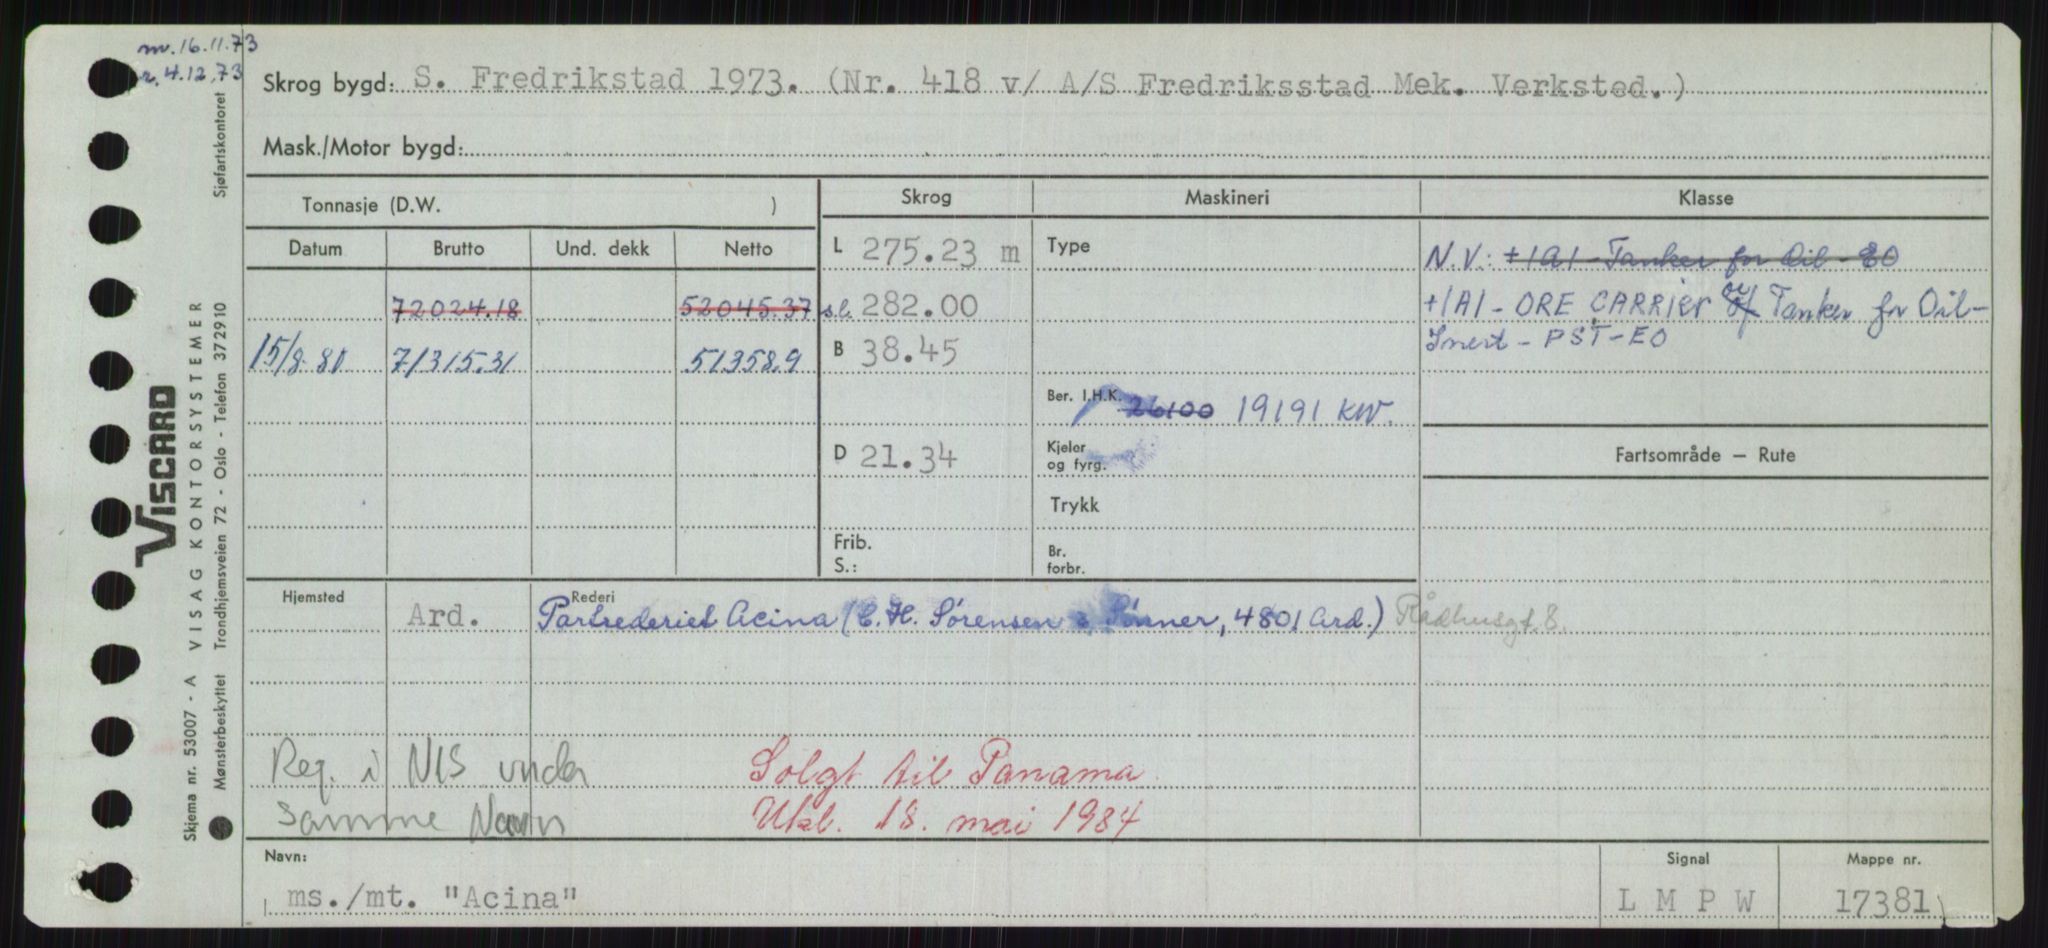 nv. 16.11.73
r. 4.12.73
Skrog bygd: S. Fredrikstad 1973. (Nr. 418 v/ A/S Fredriksstad Mek. Verksted.)
Mask./Motor bygd:
Tonnasje (D.W. )
Skrog
Maskineri
Klasse
Datum Brutto Und. dekk Netto
L 275.23 m
Type
N.V.: +1A1 - Tanker for Oil - EO
72024.18 52045.37
s.l. 282.00
+1A1 - ORE CARRIER or Tanker for Oil -
15/8-80 71315.31 51358.9
B 38.45
Inert - PST - EO
Ber. I.H.K. 26100 19191 KW.
D 21.34
Kjeler
og fyrg.
Fartsområde – Rute
Trykk
Frib.
S.:
Br.
forbr.
Hjemsted Rederi
Ard. Partrederiet Acina (C. H. Sørensen & Sønner, 4801 Ard.) Rådhusgt. 8.
Reg. i NIS under
samme Navn
Solgt til Panama
Utkl. 18. mai 1984
Navn:
Signal
Mappe nr.
ms./mt. "Acina"
L M P W
17381
Skjema nr. 53007 - A VISAG KONTORSYSTEMER
VISCARD
Mønsterbeskyttet Trondhjemsveien 72 - Oslo - Telefon 372910 Sjøfartskontoret